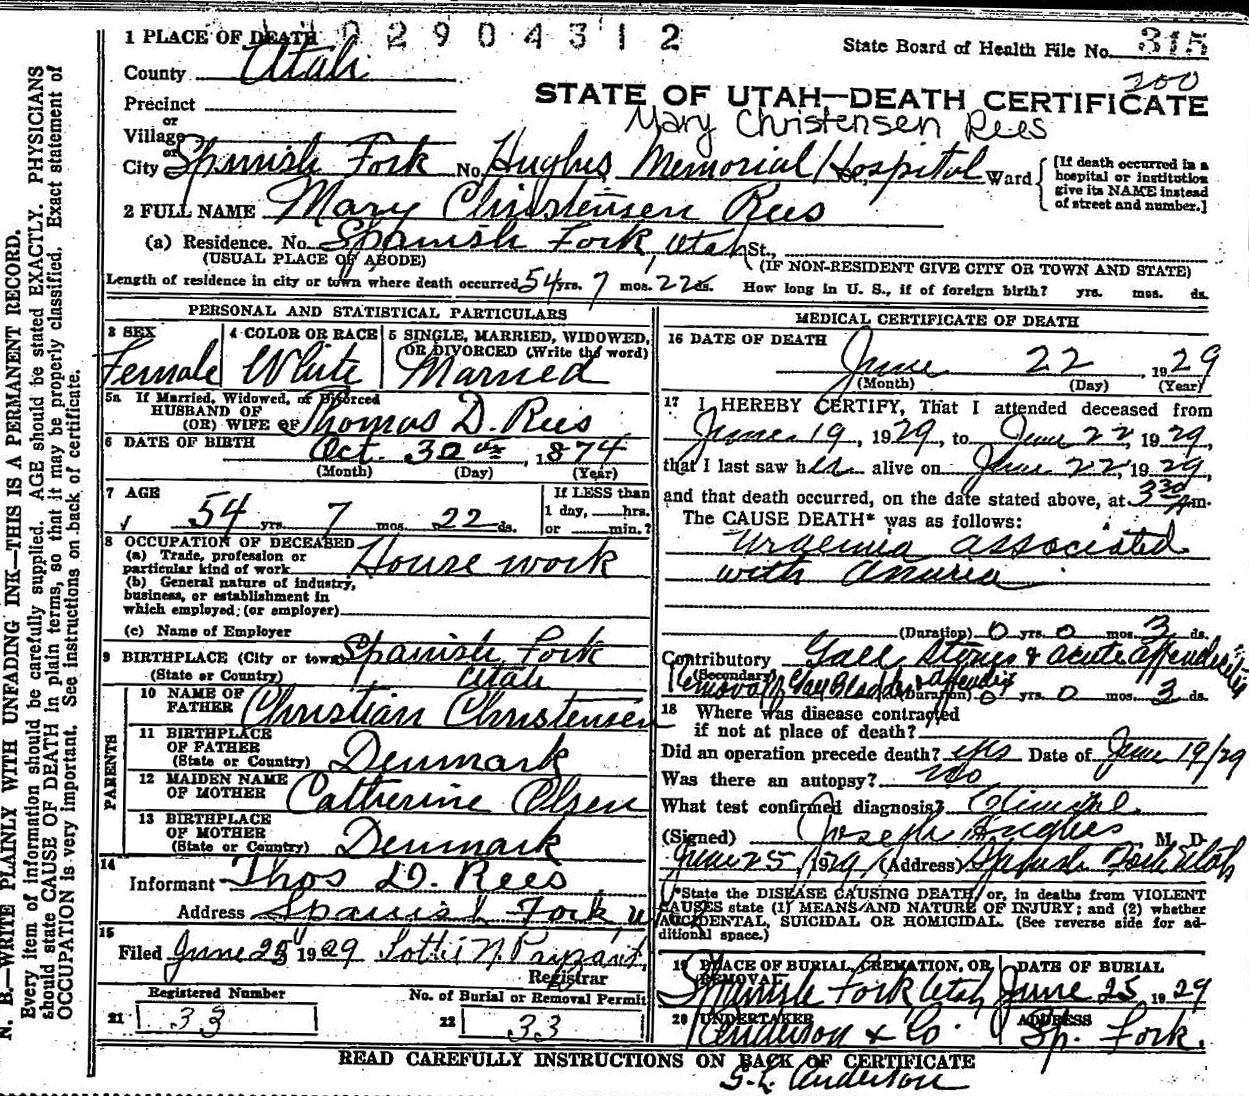 1 PLACE OF DEATH 02904312
State Board of Health File No. 315
County Utah
200
STATE OF UTAH—DEATH CERTIFICATE
Mary Christensen Rees
Precinct
or
Village
or
City Spanish Fork No. Hughes Memorial Hospital St., Ward
[If death occurred in a
hospital or institution
give its NAME instead
of street and number.]
2 FULL NAME Mary Christensen Rees
(a) Residence. No. Spanish Fork, Utah St.,
(USUAL PLACE OF ABODE) (IF NON-RESIDENT GIVE CITY OR TOWN AND STATE)
Length of residence in city or town where death occurred 54 yrs. 7 mos. 22 ds. How long in U. S., if of foreign birth? yrs. mos. ds.
PERSONAL AND STATISTICAL PARTICULARS
3 SEX
Female
4 COLOR OR RACE
White
5 SINGLE, MARRIED, WIDOWED,
OR DIVORCED (Write the word)
Married
5a If Married, Widowed, or Divorced
HUSBAND OF
(OR) WIFE OF Thomas D. Rees
6 DATE OF BIRTH Oct. 30th, 1874
(Month) (Day) (Year)
7 AGE
54 yrs. 7 mos. 22 ds.
If LESS than
1 day, hrs.
or min.?
8 OCCUPATION OF DECEASED
(a) Trade, profession or
particular kind of work House work
(b) General nature of industry,
business, or establishment in
which employed; (or employer)
(c) Name of Employer
9 BIRTHPLACE (City or town) Spanish Fork
(State or Country) Utah
PARENTS
10 NAME OF
FATHER Christian Christensen
11 BIRTHPLACE
OF FATHER
(State or Country) Denmark
12 MAIDEN NAME
OF MOTHER Catherine Olsen
13 BIRTHPLACE
OF MOTHER
(State or Country) Denmark
14
Informant Thos D. Rees
Address Spanish Fork, U
15
Filed June 25 1929 Lottie N.
Registrar
Registered Number
21 33
No. of Burial or Removal Permit
22 33
MEDICAL CERTIFICATE OF DEATH
16 DATE OF DEATH
June 22 1929
(Month) (Day) (Year)
17 I HEREBY CERTIFY, That I attended deceased from
June 19, 1929, to June 22, 1929,
that I last saw her alive on June 22, 1929,
and that death occurred, on the date stated above, at 3:30 Am.
The CAUSE DEATH* was as follows:
Uraemia associated
with Anuria
(Duration) 0 yrs. 0 mos. 3 ds.
Contributory Gall Stones & acute appendicitis
(Secondary)
Removal of Gall Bladder appendix (Duration) 0 yrs. 0 mos. 3 ds.
18 Where was disease contracted
if not at place of death?
Did an operation precede death? yes Date of June 19/29
Was there an autopsy? No
What test confirmed diagnosis? Clinical.
(Signed) Joseph Hughes M. D.
June 25, 1929 (Address) Spanish Fork Utah
*State the DISEASE CAUSING DEATH, or, in deaths from VIOLENT
CAUSES state (1) MEANS AND NATURE OF INJURY; and (2) whether
ACCIDENTAL, SUICIDAL OR HOMICIDAL. (See reverse side for ad-
ditional space.)
19 PLACE OF BURIAL, CREMATION, OR
REMOVAL
Spanish Fork, Utah
DATE OF BURIAL
June 25 1929
20 UNDERTAKER
Anderson & Co.
ADDRESS
Sp. Fork.
READ CAREFULLY INSTRUCTIONS ON BACK OF CERTIFICATE
S. L. Anderson
N. B.—WRITE PLAINLY WITH UNFADING INK—THIS IS A PERMANENT RECORD.
Every item of information should be carefully supplied. AGE should be stated EXACTLY. PHYSICIANS
should state CAUSE OF DEATH in plain terms, so that it may be properly classified. Exact statement of
OCCUPATION is very important. See instructions on back of certificate.